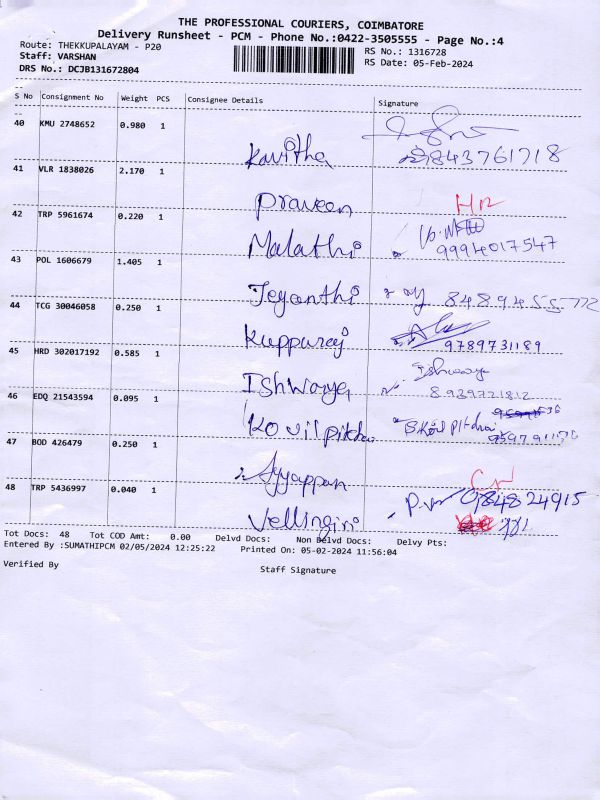 THE PROFESSIONAL COURIERS, COIMBATORE
Delivery Runsheet - PCM - Phone No.:0422-3505555 - Page No.:4
Route: THEKKUPALAYAM - P20
RS No.: 1316728
Staff: VARSHAN
RS Date: 05-Feb-2024
DRS No.: DCJB131672804
S No Consignment No Weight PCS Consignee Details Signature
40 KMU 2748652 0.980 1
Kavitha 9843761718
41 VLR 1838026 2.170 1
Praveen
42 TRP 5961674 0.220 1
Malathi 9994017547
43 POL 1606679 1.405 1
Jeyanthi 8489455772
44 TCG 30046058 0.250 1
Kuppuraj 9789731189
45 HRD 302017192 0.585 1
Ishwarya Ishwarya
8939721812
46 EDQ 21543594 0.095 1
Kovilpitchai
47 BOD 426479 0.250 1
Ayyappan
48 TRP 5436997 0.040 1
Vellingiri
Tot Docs: 48 Tot COD Amt: 0.00 Delvd Docs: Non Delvd Docs: Delvy Pts:
Entered By :SUMATHIPCM 02/05/2024 12:25:22 Printed On: 05-02-2024 11:56:04
Verified By
Staff Signature